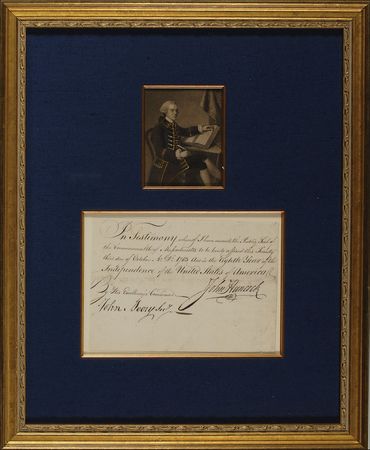 In Testimony whereof I have caused the Public Seal of
the Commonwealth of Massachusetts to be hereto affixed this Twenty
third day of October A.D. 1783 And in the Eighth Year of the
Independence of the United States of America
By His Excellency's Command
John Hancock
John Avery Secy